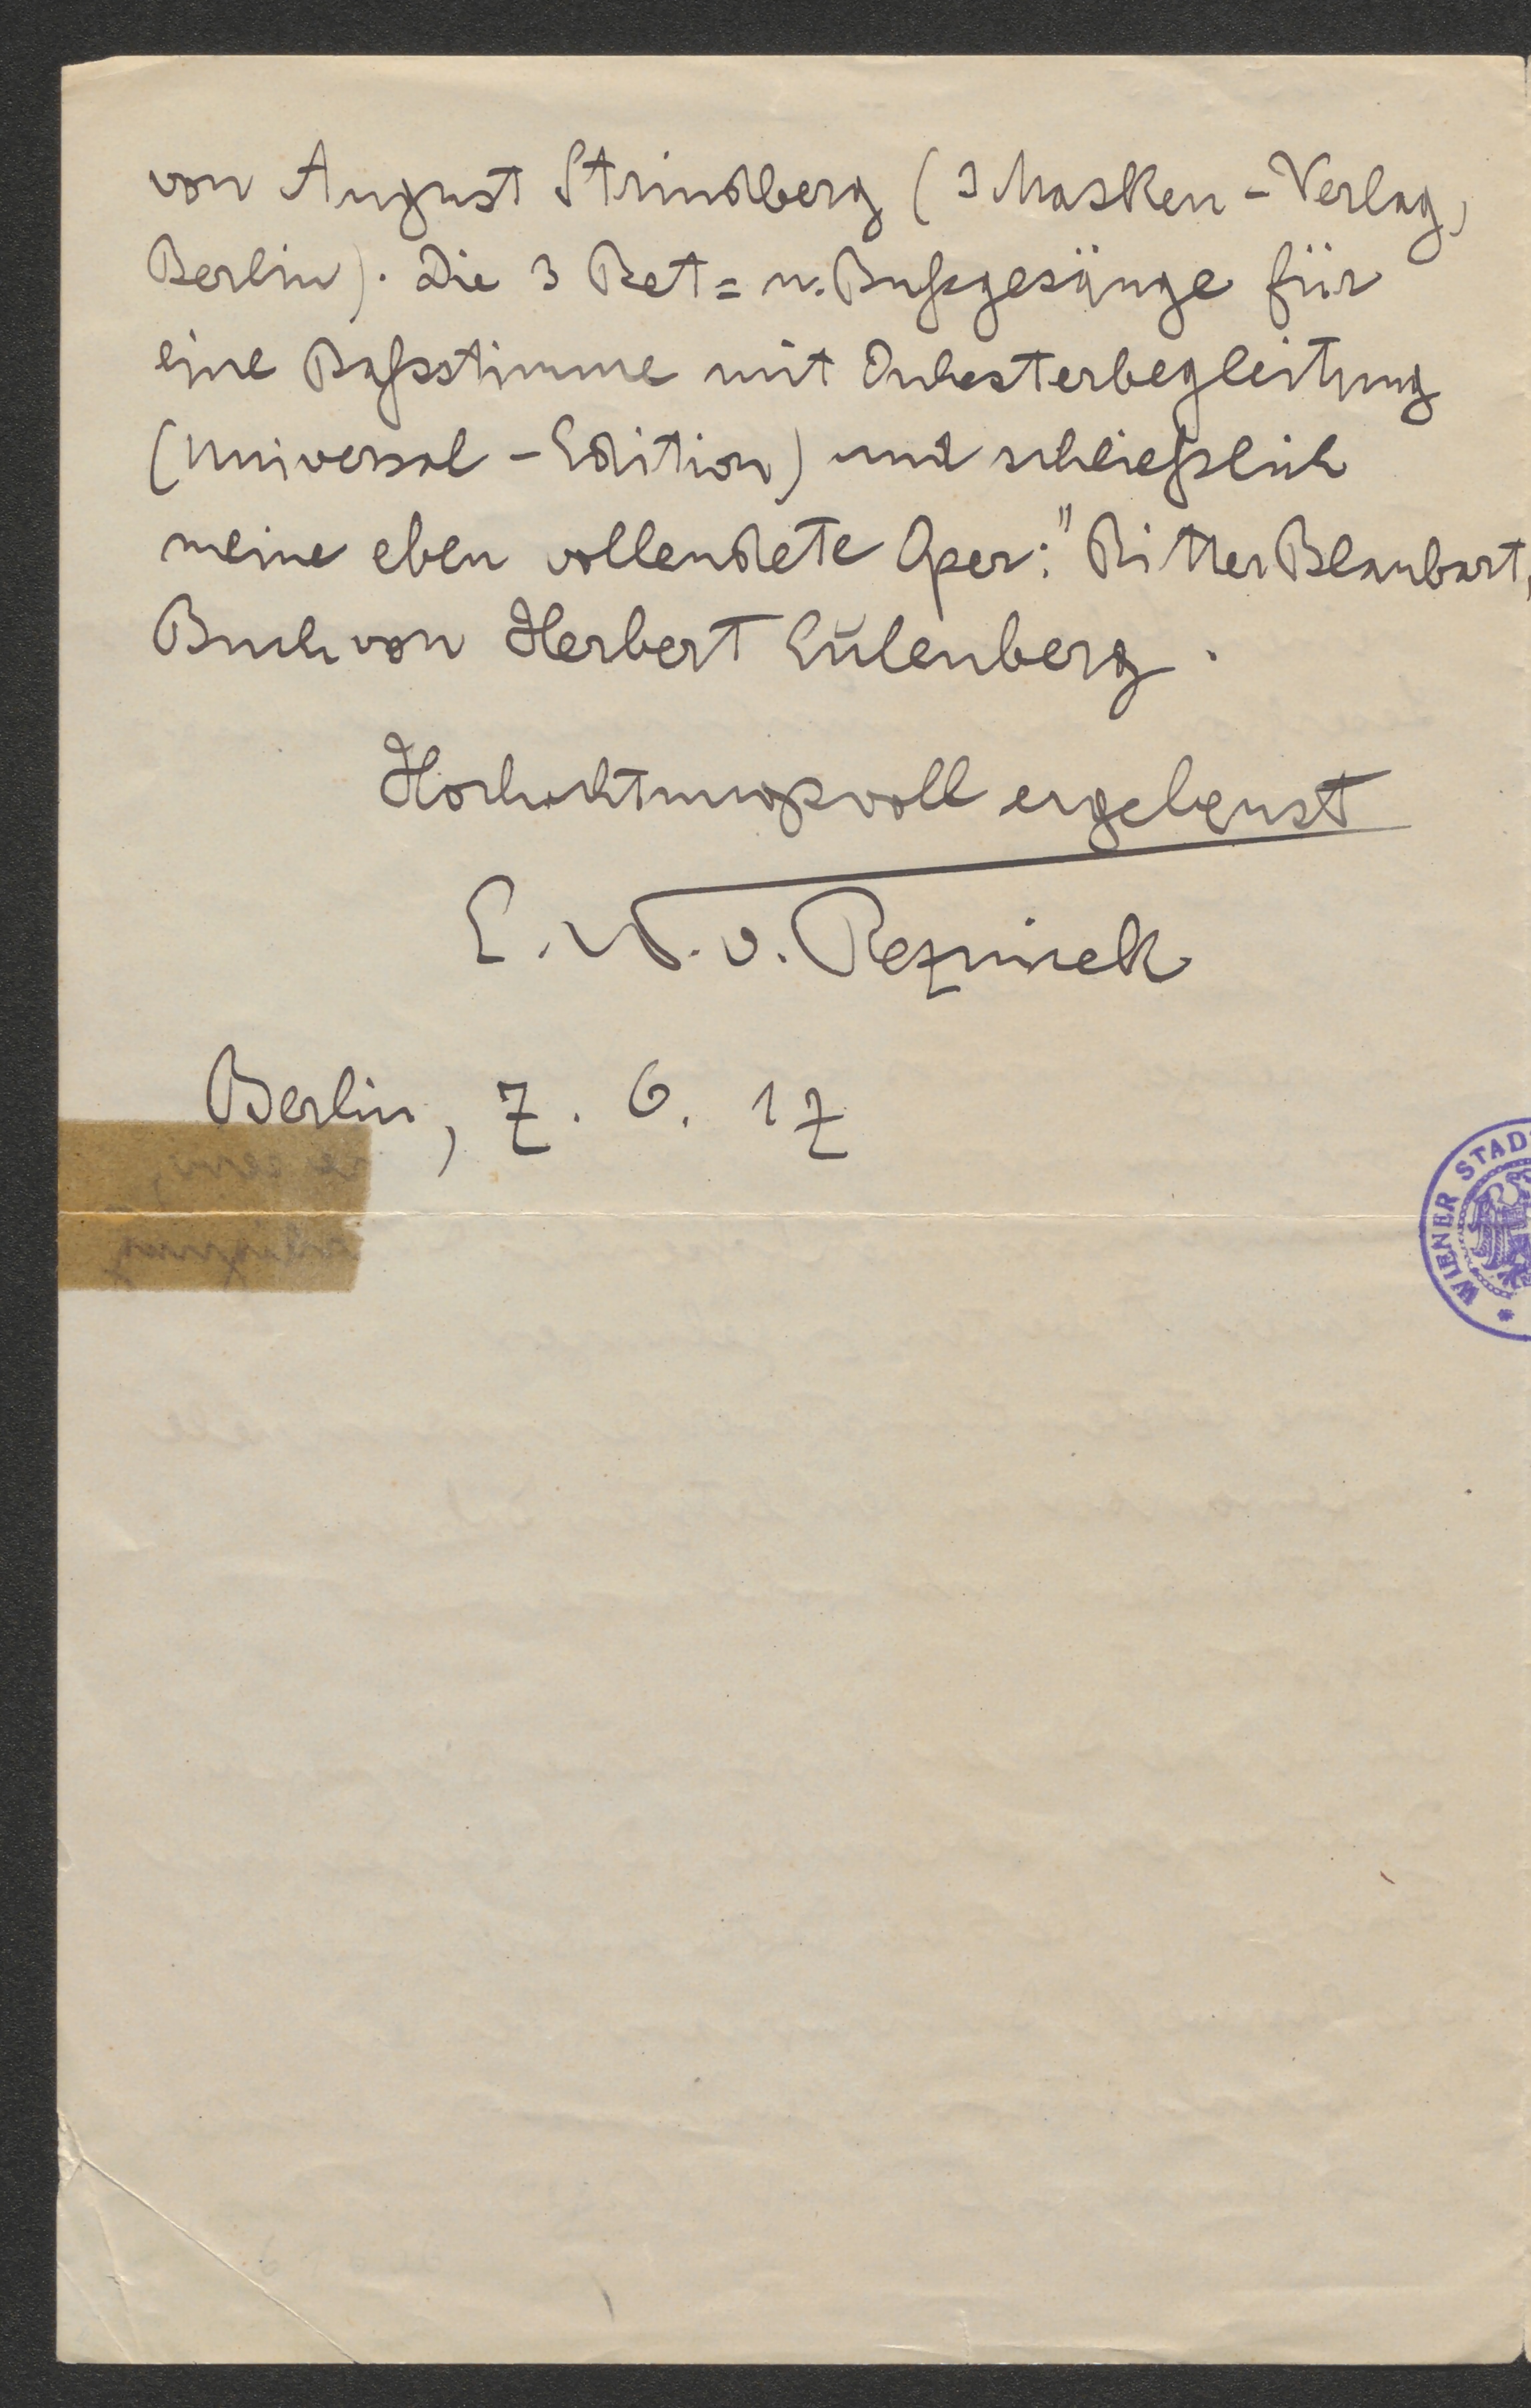 von August Strindberg (3 Masken-Verlag,
Berlin). Die 3 Bet= u. Bußgesänge für
eine Baßstimme mit Orchesterbegleitung
(Universal-Edition) und schließlich
meine eben vollendete Oper: "Ritter Blaubart,
Buch von Herbert Eulenberg.
Hochachtungsvoll ergebenst
E. N. v. Reznicek
Berlin, 7. 6. 17
WIENER STAD